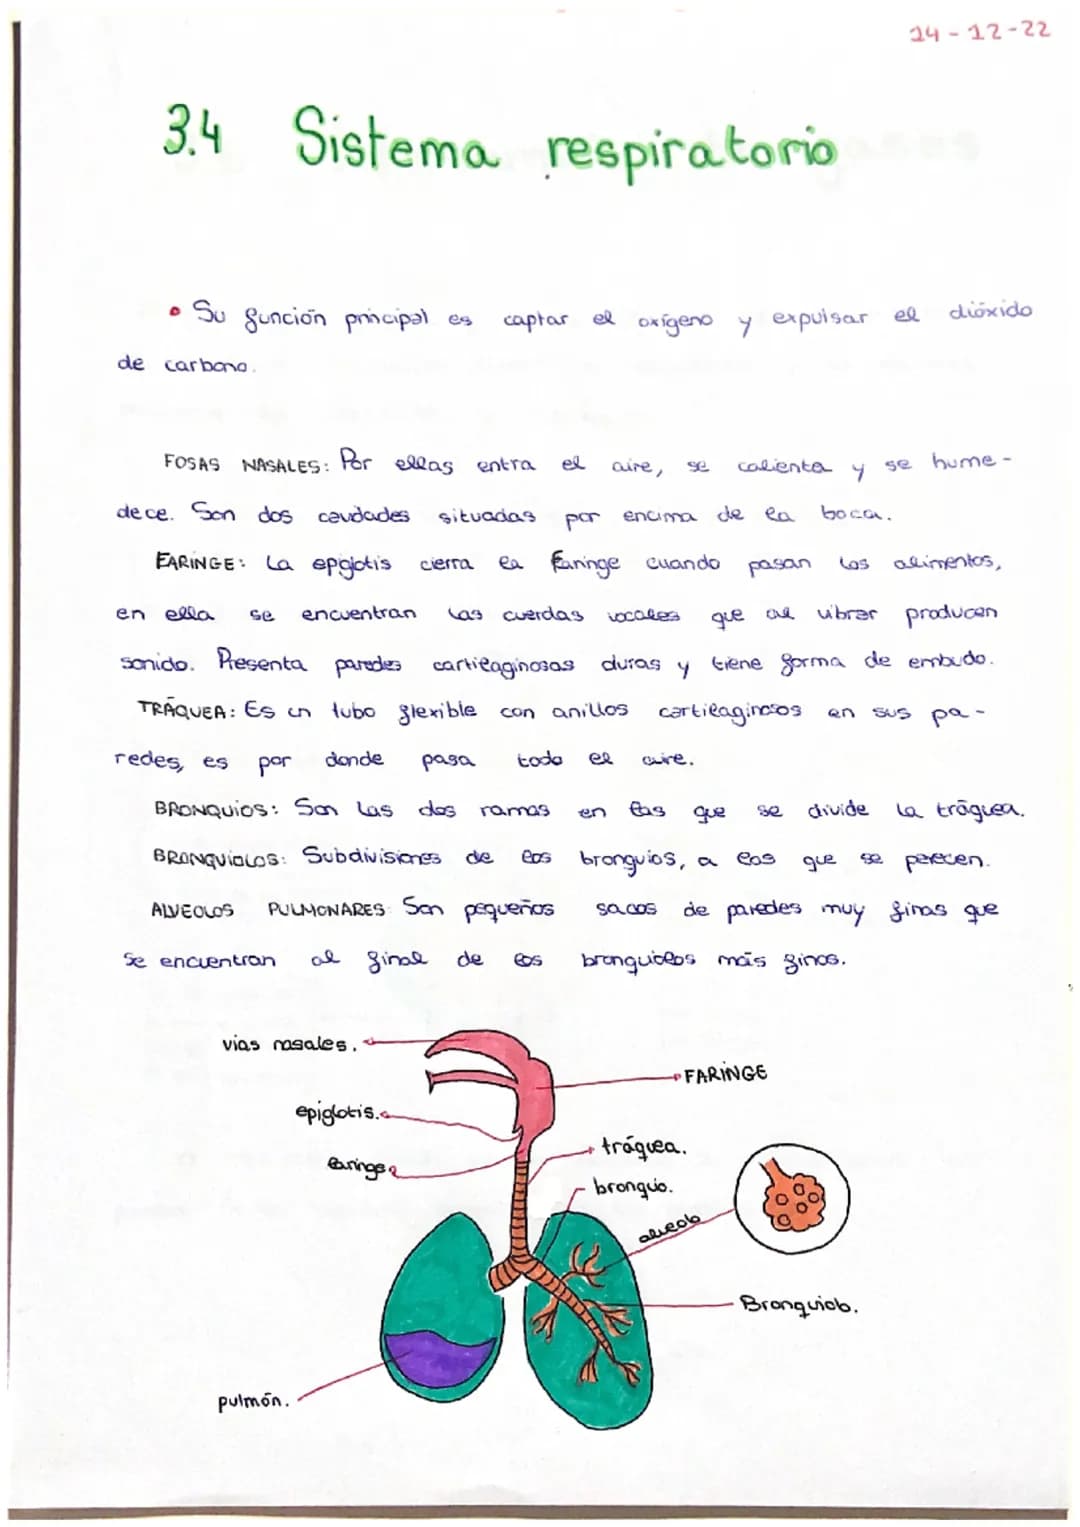 14-12-22
3.4 Sistema respiratorio
• Su función principal es captar el oxígeno y expulsar el dióxido
de carbono.
FOSAS NASALES: Por ellas entra el aire, se calienta y se hume-
dece. Son dos cavidades situadas por encima de la boca.
FARINGE: La epiglotis cierra la faringe cuando pasan los alimentos,
en ella se encuentran las cuerdas vocales que al vibrar producen
sonido. Presenta paredes cartilaginosas duras y tiene forma de embudo.
TRÁQUEA: Es un tubo flexible con anillos cartilaginosos en sus pa-
redes, es por donde pasa todo el aire.
BRONQUIOS: Son las dos ramas en las que se divide la tráquea.
BRONQUIOLOS: Subdivisiones de los bronquios, a los que se parecen.
ALVEOLOS PULMONARES: Son pequeños sacos de paredes muy finas que
se encuentran al final de los bronquiolos más finos.
vias nasales.
FARINGE
epiglotis.
laringe
tráquea.
bronquio.
alveolo
Bronquiolo.
pulmón.